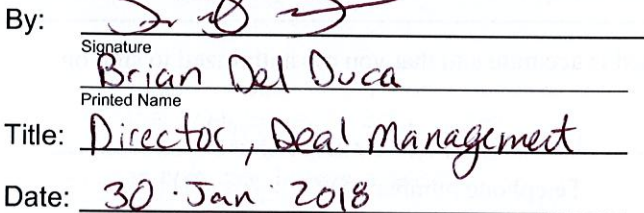 By:
Signature
Brian Del Duca
Printed Name
Title: Director, Deal Management
Date: 30 Jan 2018